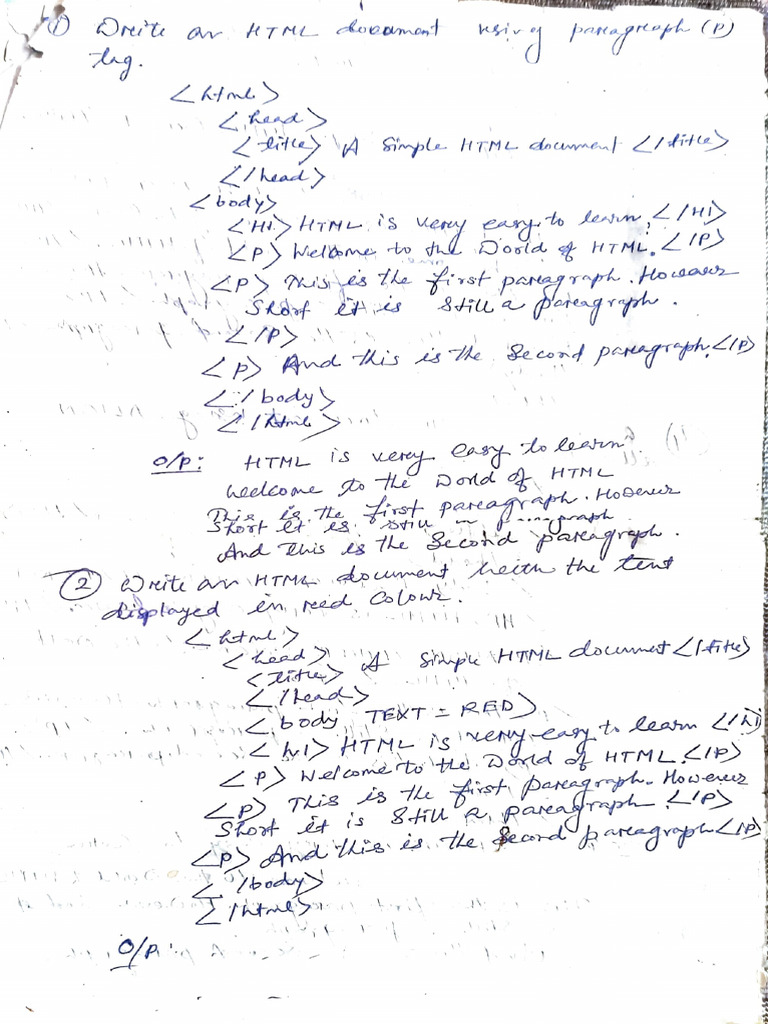 ① Write an HTML document using paragraph (P)
tag.
<html>
<head>
<title> A Simple HTML document </title>
</head>
<body>
<H1> HTML is very easy to learn </H1>
<P> Welcome to the World of HTML. </P>
<P> This is the first paragraph. However
Short it is still a paragraph.
</P>
<P> And this is the Second paragraph. </P>
</body>
</html>
O/P: HTML is very easy to learn
Welcome to the World of HTML
This is the first paragraph. However
Short it is still a paragraph
And this is the Second paragraph.
② Write an HTML document with the text
displayed in red colour.
<html>
<head>
<title> A Simple HTML document </title>
</head>
<body TEXT = RED>
<h1> HTML is very easy to learn </h1>
<P> Welcome to the World of HTML. </P>
<P> This is the first paragraph. However
Short it is Still a paragraph. </P>
<P> And this is the Second paragraph </P>
</body>
</html>
O/P: